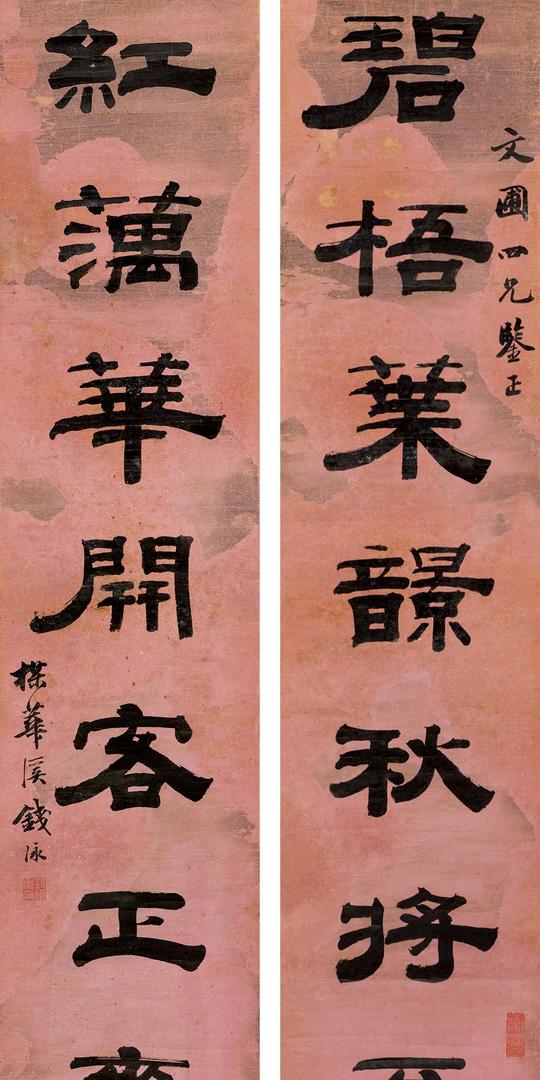 文圃四兄鑒正
碧梧葉秋將
紅蕅華開客正
楳華溪錢泳